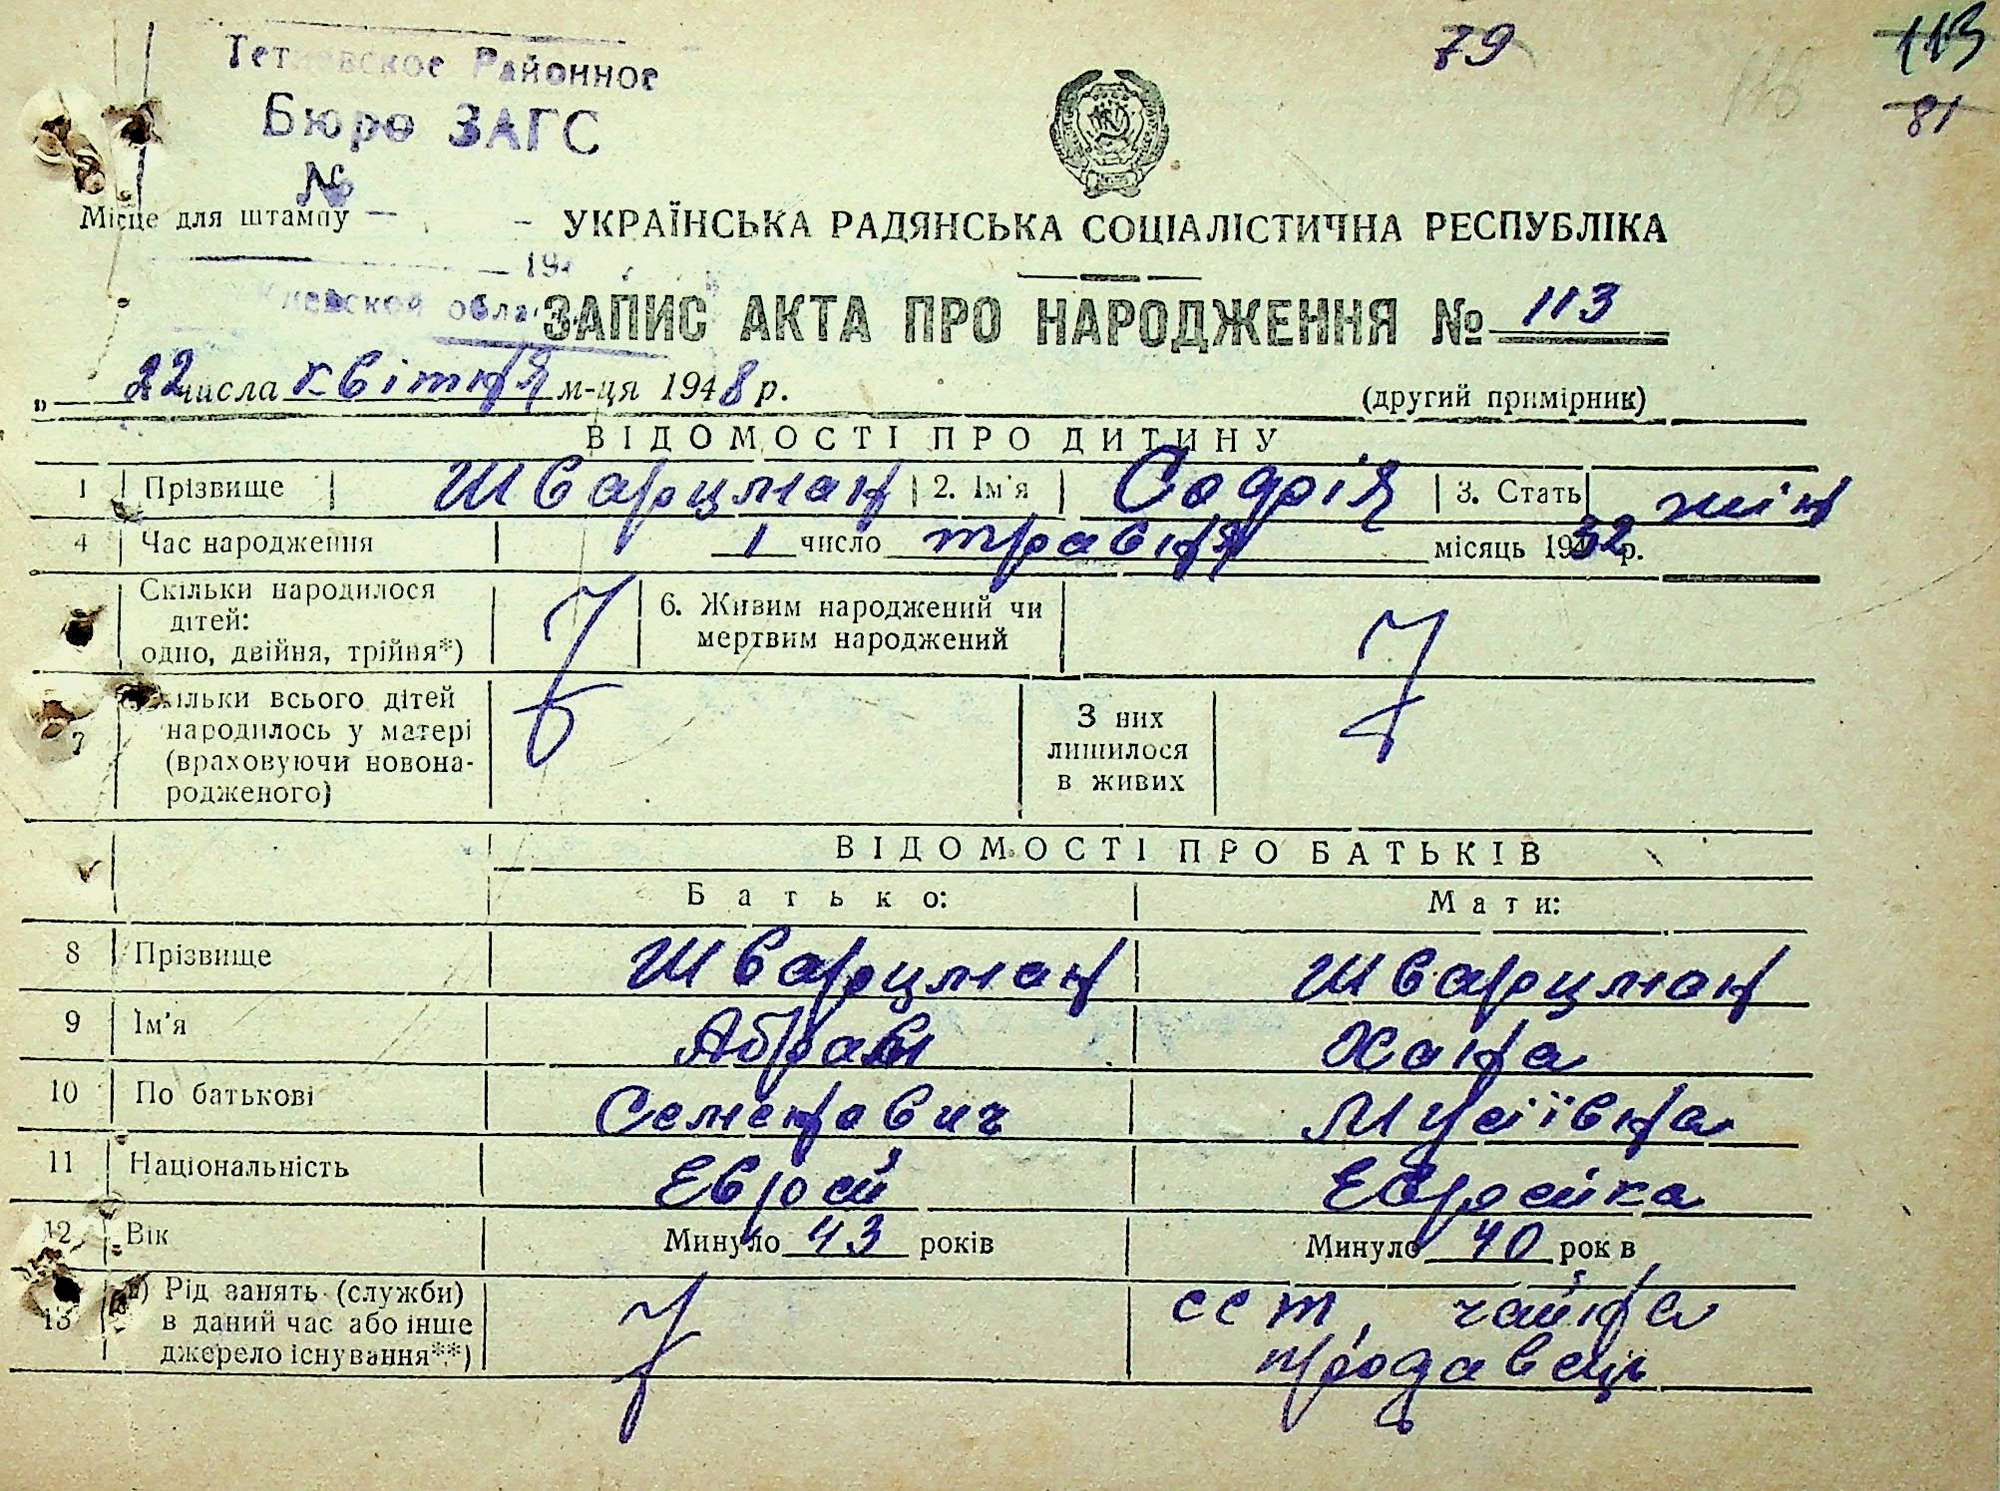 79 113
116 81
Тетиевское Районное
Бюро ЗАГС
№
Місце для штампу
УКРАЇНСЬКА РАДЯНСЬКА СОЦІАЛІСТИЧНА РЕСПУБЛІКА
194
Киевской обла
ЗАПИС АКТА ПРО НАРОДЖЕННЯ № 113
" 22 числа квітня м-ця 1948 р. (другий примірник)
ВІДОМОСТІ ПРО ДИТИНУ
1 Прізвище Шварцман 2. Ім'я Содрія 3. Стать жін
4 Час народження 1 число травня місяць 1932 р.
Скільки народилося дітей: одно, двійня, трійня*) 6. Живим народжений чи мертвим народжений
7 Скільки всього дітей народилось у матері (враховуючи новонародженого) З них лишилося в живих
ВІДОМОСТІ ПРО БАТЬКІВ
Батько: Мати:
8 Прізвище Шварцман Шварцман
9 Ім'я Абрам Хана
10 По батькові Семенович Мусіївна
11 Національність Еврей Еврейка
12 Вік Минуло 43 років Минуло 40 рок в
13 а) Рід занять (служби) в даний час або інше джерело існування**) сст. чайна
продавець